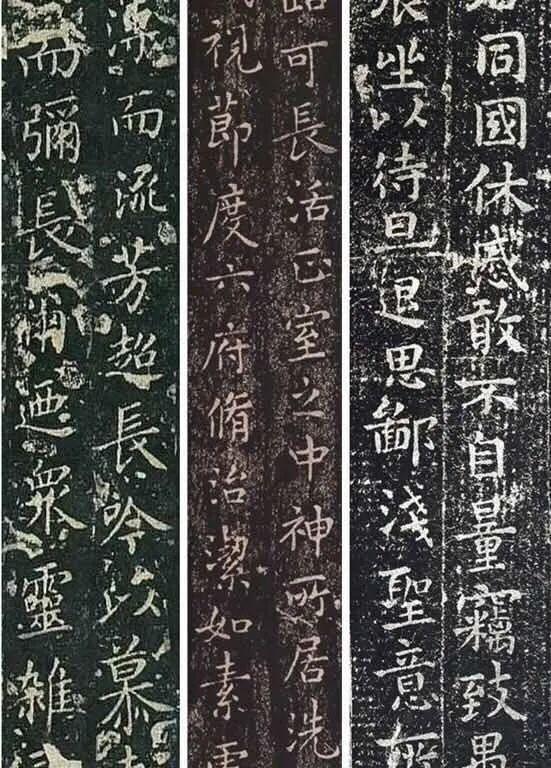 同國休慼敢不自量竊致愚
坐以待旦退思鄙淺聖意所
可長活正室之中神所居洗
視節度六府脩治潔如素
薄而流芳超長吟以慕
而彌長爾迺眾靈雜